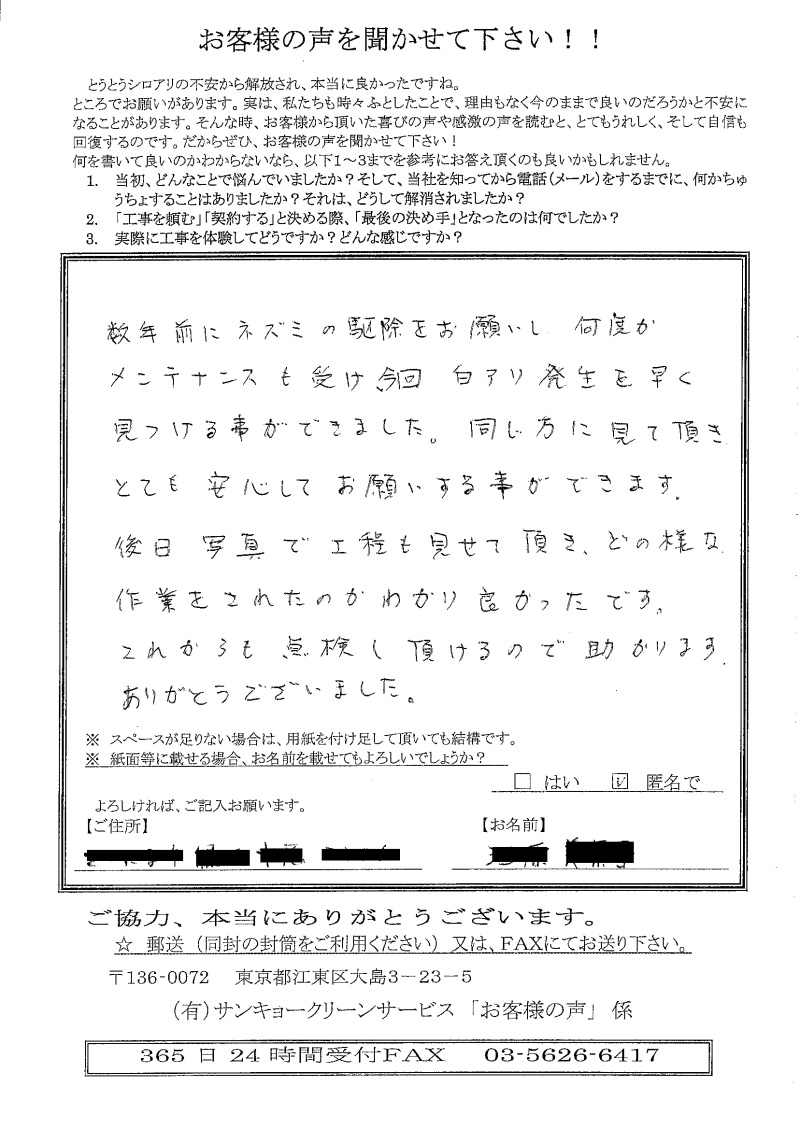 お客様の声を聞かせて下さい！！
とうとうシロアリの不安から解放され、本当に良かったですね。
ところでお願いがあります。実は、私たちも時々ふとしたことで、理由もなく今のままで良いのだろうかと不安に
なることがあります。そんな時、お客様から頂いた喜びの声や感激の声を読むと、とてもうれしく、そして自信も
回復するのです。だからぜひ、お客様の声を聞かせて下さい！
何を書いて良いのかわからないなら、以下1～3までを参考にお答え頂くのも良いかもしれません。
1. 当初、どんなことで悩んでいましたか？そして、当社を知ってから電話（メール）をするまでに、何かちゅ
うちょすることはありましたか？それは、どうして解消されましたか？
2. 「工事を頼む」「契約する」と決める際、「最後の決め手」となったのは何でしたか？
3. 実際に工事を体験してどうですか？どんな感じですか？
数年前にネズミの駆除をお願いし 何度か
メンテナンスも受け今回 白アリ発生を早く
見つける事ができました。同じ方に見て頂き
とても安心してお願いする事ができます。
後日 写真で工程も見せて頂き、どの様な
作業をされたのかわかり良かったです。
これからも点検し頂けるので助かります。
ありがとうございました。
※ スペースが足りない場合は、用紙を付け足して頂いても結構です。
※ 紙面等に載せる場合、お名前を載せてもよろしいでしょうか？
□ はい ☑ 匿名で
よろしければ、ご記入お願います。
【ご住所】 【お名前】
ご協力、本当にありがとうございます。
☆ 郵送（同封の封筒をご利用ください）又は、FAXにてお送り下さい。
〒136-0072 東京都江東区大島3－23－5
（有）サンキョークリーンサービス 「お客様の声」係
365日24時間受付FAX 03-5626-6417